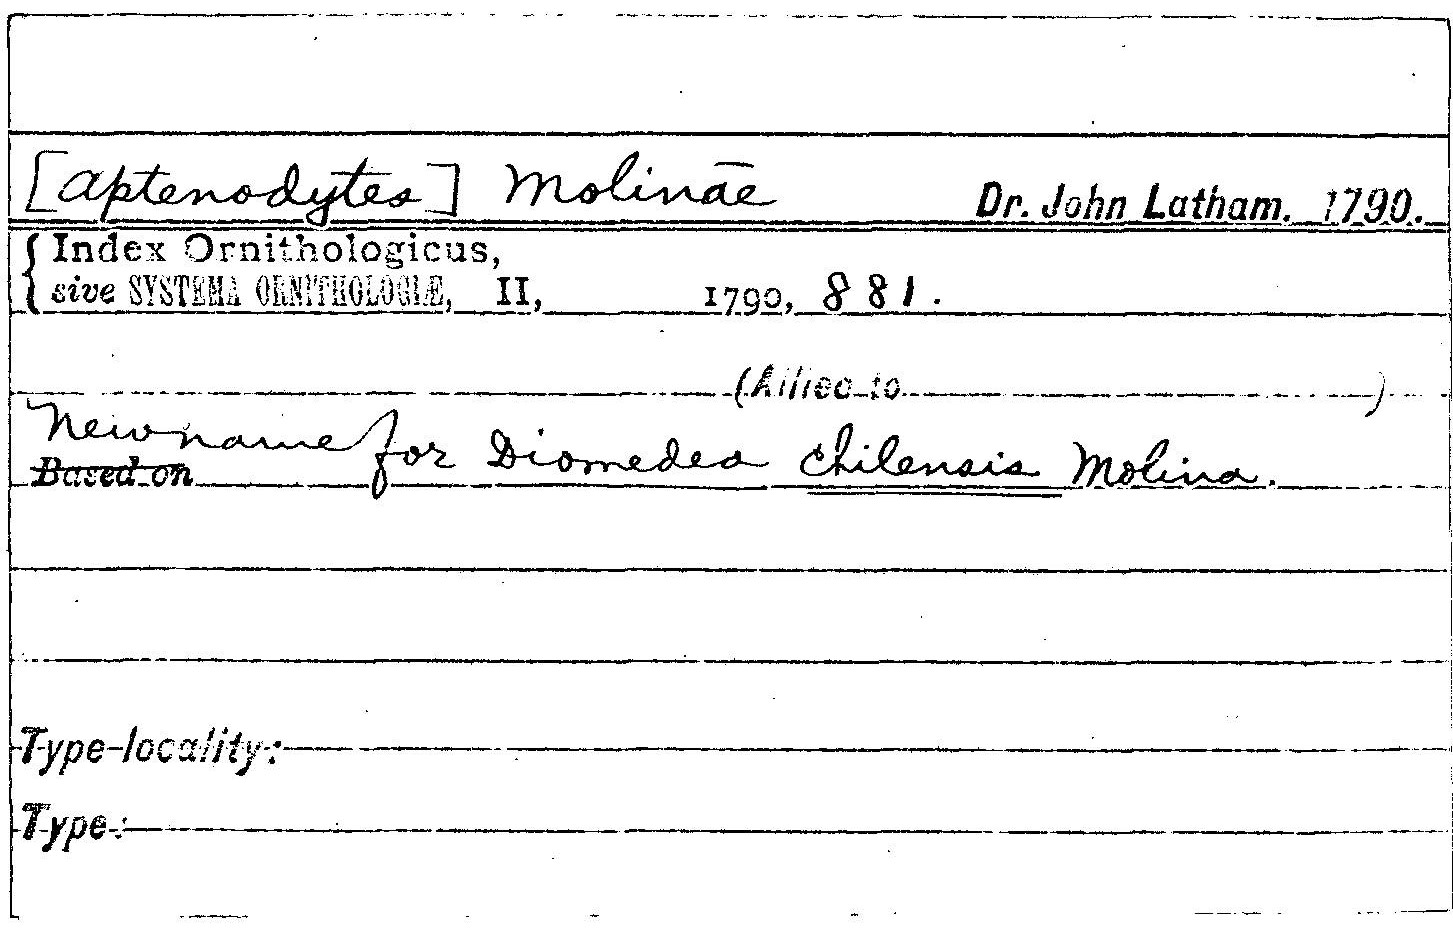 [Aptenodytes] Molinae Dr. John Latham. 1790.
{Index Ornithologicus,
sive SYSTEMA ORNITHOLOGIÆ, II, 1790, 881.
(Allied to )
New name for Diomedea chilensis Molina.
Based on
Type-locality:
Type: